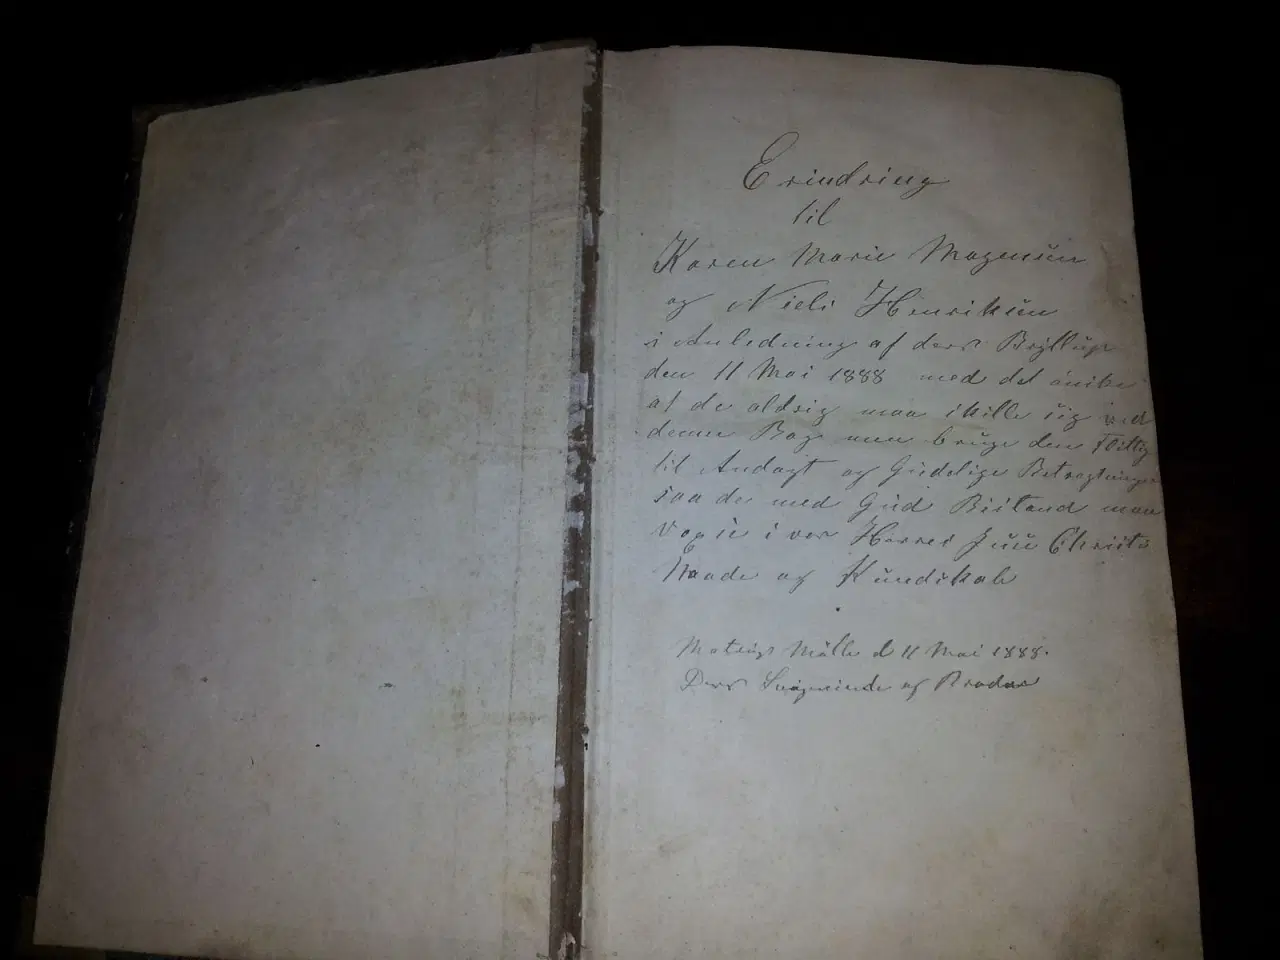 Erindring
til
Karen Marie Mogensen
og Niels Henriksen
i Anledning af deres Bryllup
den 11 Mai 1888 med det ønske
at de aldrig maa skille sig ved
denne Bog men bruge den Flittig
til Andagt og Gudelige Betragtninger
saa de med Gud Bistand maa
voxse i vor Herres Jesu Christi
Naade og Kundskab
Mølle d 11 Mai 1888.
Deres Svigerinde og Broder